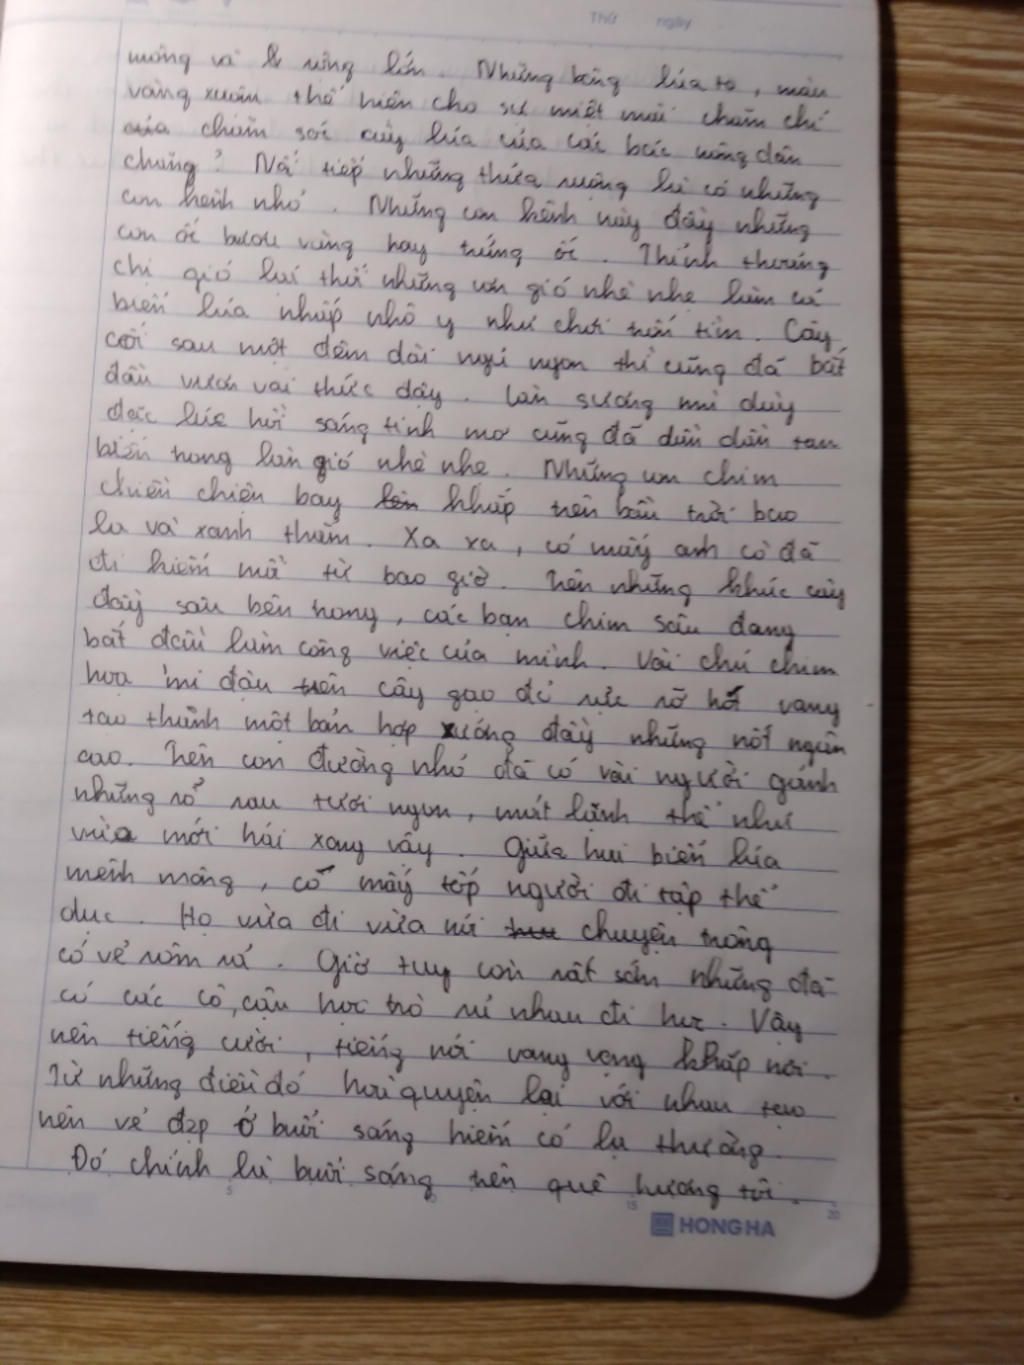 Thứ ngày
mông và rộng lớn. Những bông lúa to, màu
vàng xuộm thể hiện cho sự miệt mài chăm chỉ
của chăm sóc cây lúa của các bác nông dân
chúng? Nối tiếp những thửa ruộng là có những
con kênh nhỏ. Những con kênh này đầy những
con ốc bươu vàng hay trứng ốc. Thỉnh thoảng
chị gió lại thổi những cơn gió nhè nhẹ làm cả
biển lúa nhấp nhô y như chơi trốn tìm. Cây
cối sau một đêm dài ngủ ngon thì cũng đã bắt
đầu vươn vai thức dậy. Làn sương mù dày
đặc lúc hồi sáng tinh mơ cũng đã dần dần tan
biến trong làn gió nhè nhẹ. Những con chim
chiền chiện bay khắp trên bầu trời bao
la và xanh thẳm. Xa xa, có mấy anh cò đã
đi kiếm mồi từ bao giờ. Trên những khúc cây
đầy sâu bên trong, các bạn chim sâu đang
bắt đầu làm công việc của mình. Vài chú chim
họa mi đậu trên cây gạo đỏ rực rỡ hót vang
tạo thành một bản hợp xướng đầy những nốt ngân
cao. Trên con đường nhỏ đã có vài người gánh
những rổ rau tươi ngon, mát lành thể như
vừa mới hái xong vậy. Giữa hai biển lúa
mênh mông, có mấy tốp người đi tập thể
dục. Họ vừa đi vừa nói chuyện trông
có vẻ rôm rả. Giờ tuy còn rất sớm nhưng đã
có các cô, cậu học trò rủ nhau đi học. Vậy
nên tiếng cười, tiếng nói vang vọng khắp nơi.
Từ những điều đó hoà quyện lại với nhau tạo
nên vẻ đẹp ở buổi sáng hiếm có lạ thường.
Đó chính là buổi sáng trên quê hương tôi.
5 15 20
HONG HA